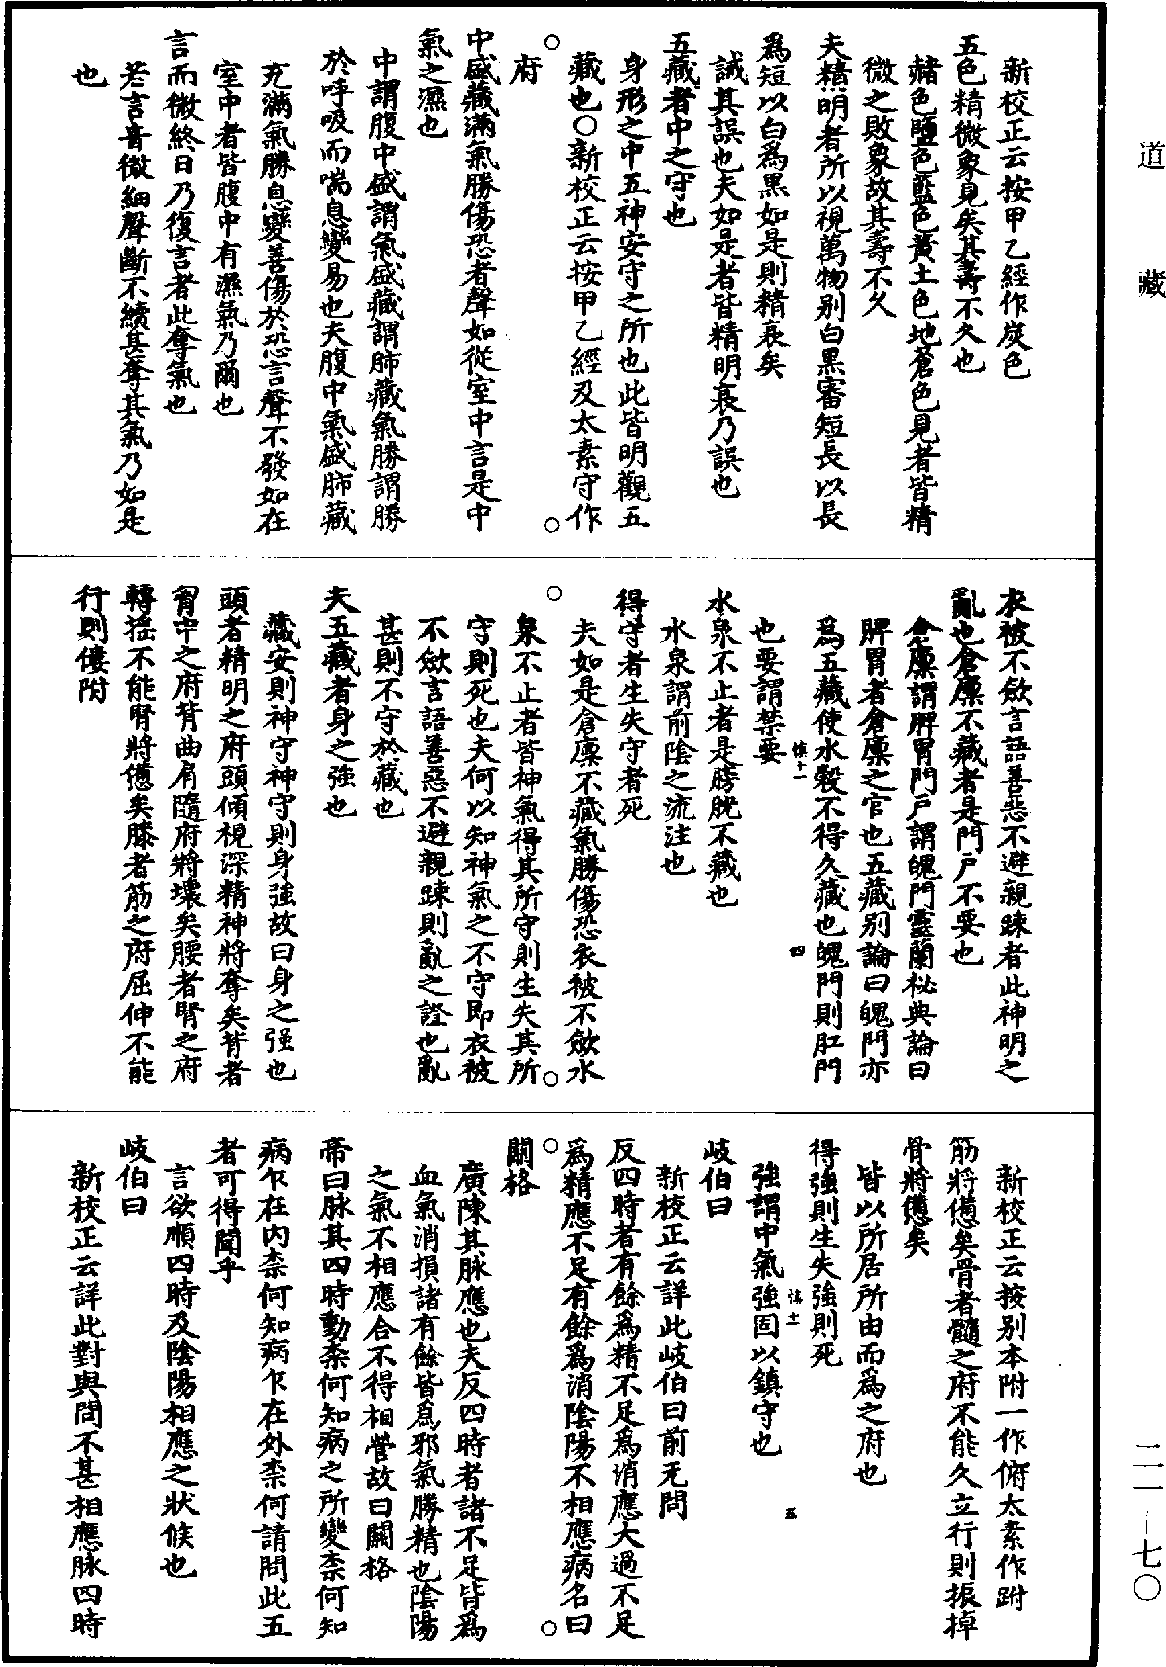 新校正云按甲乙經作炭色
五色精微象見矣其壽不久也
赭色鹽色藍色黃土色地蒼色見者皆精
微之敗象故其壽不久
夫精明者所以視萬物別白黑審短長以長
爲短以白爲黑如是則精衰矣
誡其誤也夫如是者皆精明衰乃誤也
五藏者中之守也
身形之中五神安守之所也此皆明觀五
藏也○新校正云按甲乙經及太素守作
府
中盛藏滿氣勝傷恐者聲如從室中言是中
氣之濕也
中謂腹中盛謂氣盛藏謂肺藏氣勝謂勝
於呼吸而喘息變易也夫腹中氣盛肺藏
充滿氣勝息變善傷於恐言聲不發如在
室中者皆腹中有濕氣乃爾也
言而微終日乃復言者此奪氣也
若言音微細聲斷不續其奪其氣乃如是
也
衣被不斂言語善惡不避親踈者此神明之
亂也倉廩不藏者是門戶不要也
倉廩謂脾胃門戶謂魄門靈蘭秘典論曰
脾胃者倉廩之官也五藏別論曰魄門亦
爲五藏使水穀不得久藏也魄門則肛門
也要謂禁要
慎十一　四
水泉不止者是膀胱不藏也
水泉謂前陰之流注也
得守者生失守者死
夫如是倉廩不藏氣勝傷恐衣被不斂水
泉不止者皆神氣得其所守則生失其所
守則死也夫何以知神氣之不守即衣被
不斂言語善惡不避親踈則亂之證也亂
甚則不守於藏也
夫五藏者身之強也
藏安則神守神守則身強故曰身之强也
頭者精明之府頭傾視深精神將奪矣背者
胷中之府背曲肩隨府將壞矣腰者腎之府
轉搖不能腎將憊矣膝者筋之府屈伸不能
行則僂附
新校正云按別本附一作俯太素作跗
筋將憊矣骨者髓之府不能久立行則振掉
骨將憊矣
皆以所居所由而爲之府也
得強則生失強則死
強謂中氣強固以鎮守也
慎十一　五
岐伯曰
新校正云詳此岐伯曰前无問
反四時者有餘爲精不足爲消應太過不足
爲精應不足有餘爲消陰陽不相應病名曰
關格
廣陳其脉應也夫反四時者諸不足皆爲
血氣消損諸有餘皆爲邪氣勝精也陰陽
之氣不相應合不得相營故曰關格
帝曰脉其四時動柰何知病之所變柰何知
病乍在內柰何知病乍在外柰何請問此五
者可得聞乎
言欲順四時及陰陽相應之狀候也
岐伯曰
新校正云詳此對與問不甚相應脉四時
道　藏
二一—七〇